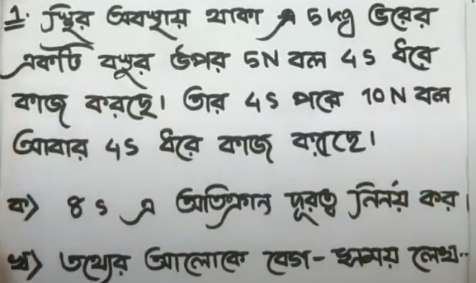 1. স্থির অবস্থায় থাকা এ 5 kg ভরের
একটি বস্তুর উপর 5N বল 4s ধরে
কাজ করছে। তার 4s পরে 10N বল
আবার 4s ধরে কাজ করছে।
ক) 8s এ অতিক্রান্ত দূরত্ব নির্নয় কর।
খ) তথ্যের আলোকে বেগ-সময় লেখ..